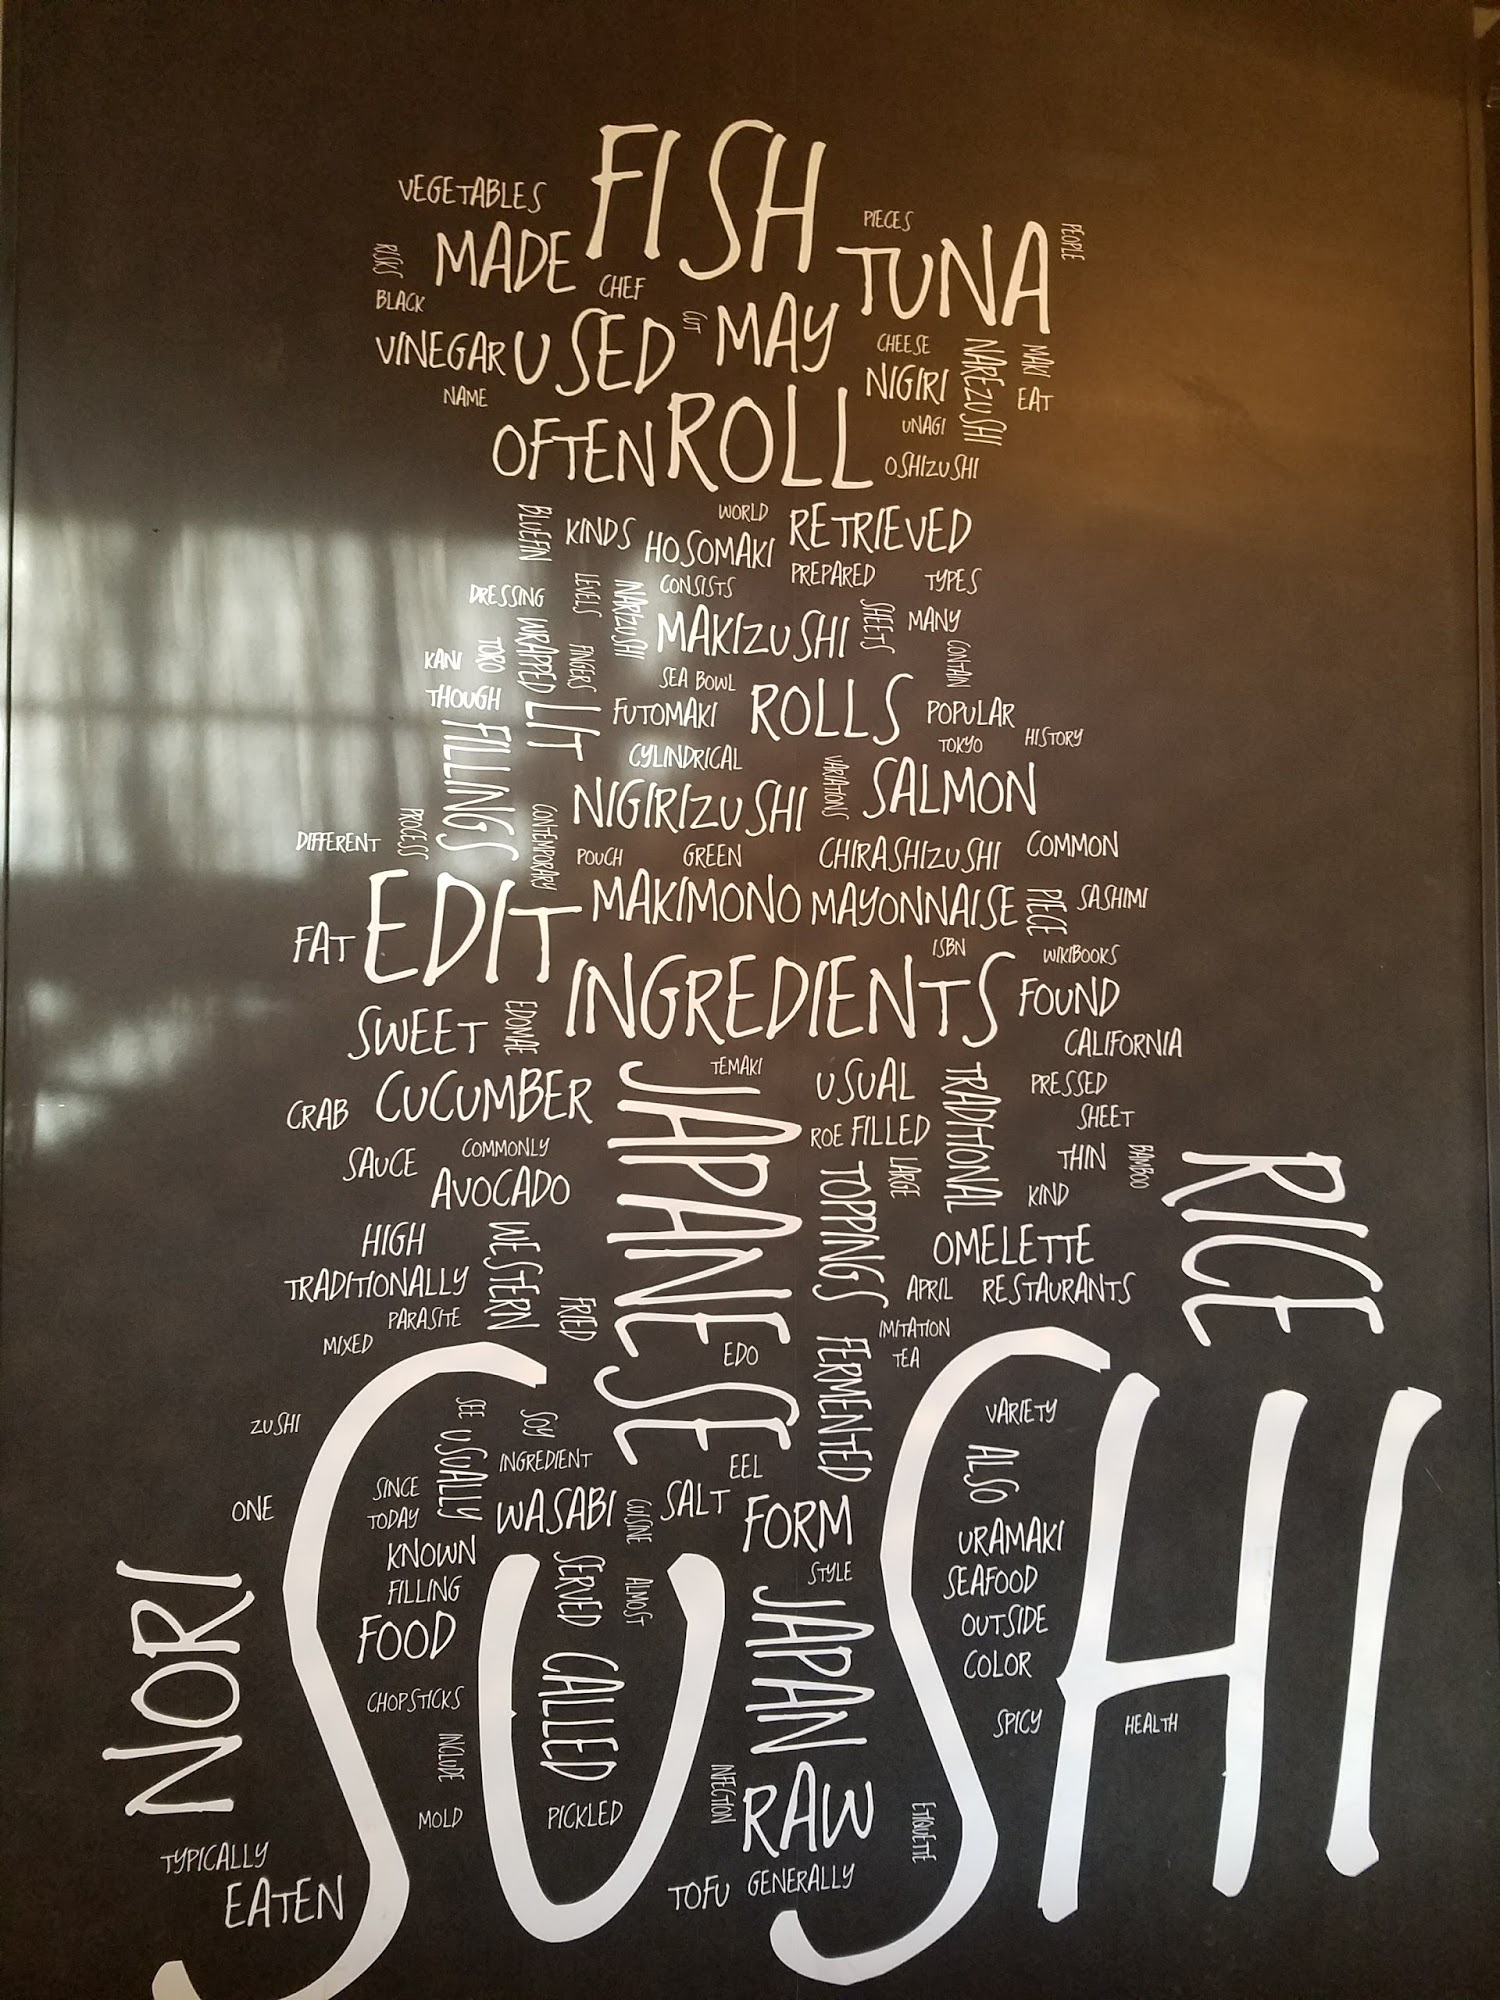 FISH
VEGETABLES
PIECES
MADE
TUNA
PEOPLE
RISKS
CHEF
BLACK
VINEGAR
USED
CUT
MAY
CHEESE
NAREZUSHI
MAKI
NIGIRI
EAT
NAME
OFTEN
ROLL
UNAGI
OSHIZUSHI
BLUEFIN
KINDS
WORLD
HOSOMAKI
RETRIEVED
PREPARED
TYPES
DRESSING
LEVELS
INARIZUSHI
CONSISTS
MAKIZUSHI
SHEETS
MANY
KANI
TORO
WRAPPED
FINGERS
CONTAIN
SEA BOWL
THOUGH
LIT
FUTOMAKI
ROLLS
POPULAR
TOKYO
HISTORY
FILLINGS
CYLINDRICAL
VARIATIONS
SALMON
NIGIRIZUSHI
DIFFERENT
PROCESS
CONTEMPORARY
POUCH
GREEN
CHIRASHIZUSHI
COMMON
EDIT
MAKIMONO
MAYONNAISE
PIECE
SASHIMI
FAT
ISBN
WIKIBOOKS
INGREDIENTS
FOUND
SWEET
EDOMAE
CALIFORNIA
JAPANESE
TEMAKI
USUAL
TRADITIONAL
PRESSED
CRAB
CUCUMBER
SHEET
ROE
FILLED
SAUCE
COMMONLY
THIN
BAMBOO
RICE
AVOCADO
TOPPINGS
LARGE
KIND
HIGH
WESTERN
OMELETTE
TRADITIONALLY
APRIL
RESTAURANTS
PARASITE
FRIED
MIXED
EDO
FERMENTED
IMITATION
TEA
SUSHI
ZUSHI
SEE
USUALLY
SOY
INGREDIENT
EEL
VARIETY
ALSO
ONE
SINCE
TODAY
WASABI
CUISINE
SALT
FORM
KNOWN
FILLING
SERVED
ALMOST
STYLE
URAMAKI
SEAFOOD
NORI
FOOD
CALLED
JAPAN
OUTSIDE
COLOR
CHOPSTICKS
INCLUDE
SPICY
HEALTH
MOLD
PICKLED
INFECTION
RAW
ETIQUETTE
TYPICALLY
EATEN
TOFU
GENERALLY